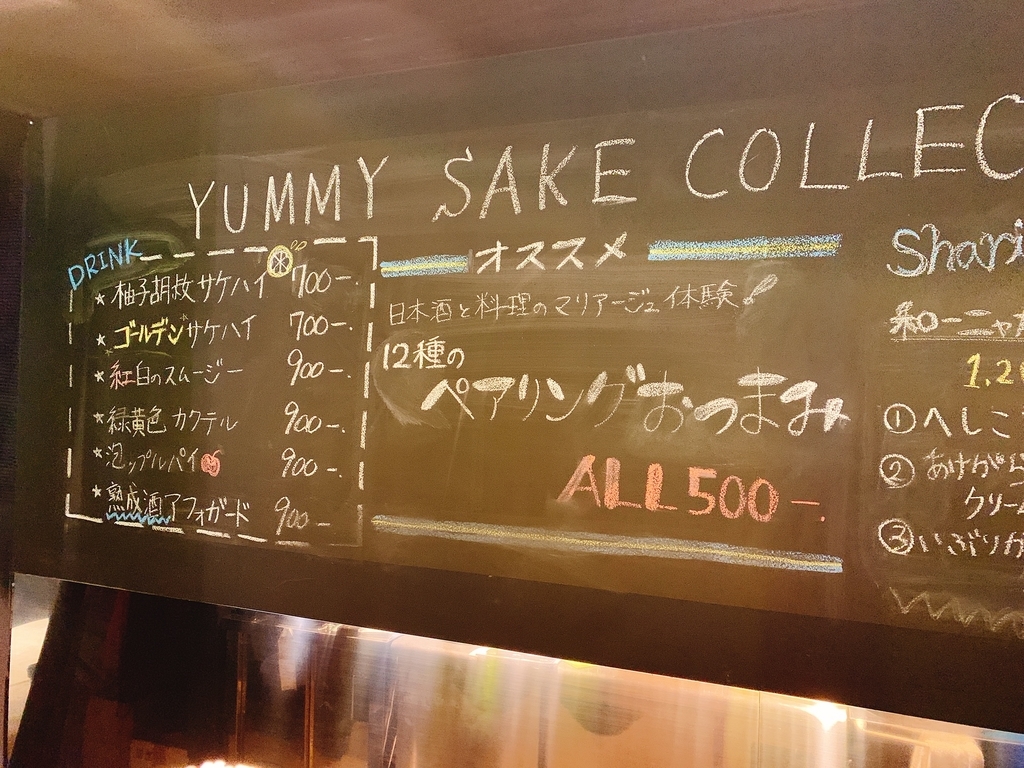 YUMMY SAKE COLLEC
DRINK
★柚子胡椒サケハイ 700-.
★ゴールデンサケハイ 700-.
★紅白のスムージー 900-.
★緑黄色カクテル 900-.
★泡ップルパイ 900-.
★熟成酒アフォガード 900-
オススメ
日本酒と料理のマリアージュ体験!
12種の
ペアリングおつまみ
ALL 500-.
Shari
和ーニャカ
1.2
①へしこ
②あけがら
クリーム
③いぶりが